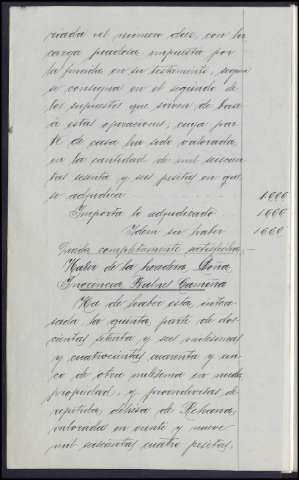 riada al numero dos, con la
carga piadosa impuesta por
la finada en su testamento, segun
se consigna en el segundo de
los supuestos que sirven de base
á estas operaciones, cuya par-
te de casa ha sido valorada
en la cantidad de mil seiscien-
tas sesenta y seis pesetas en que
se adjudica
Importa lo adjudicado
Idem su haber
Queda completamente satisfecha.
Haber de la heredera Doña
Inocencia
Ha de haber esta intere-
sada la quinta parte de dos-
cientas y seis milesimas
y cuatrocientas cuarenta y un-
co de otra milesima en nuda
propiedad, y proindivisas de
repetida dehesa de
valorada en veinte y nueve
mil seiscientas cuatro pesetas,